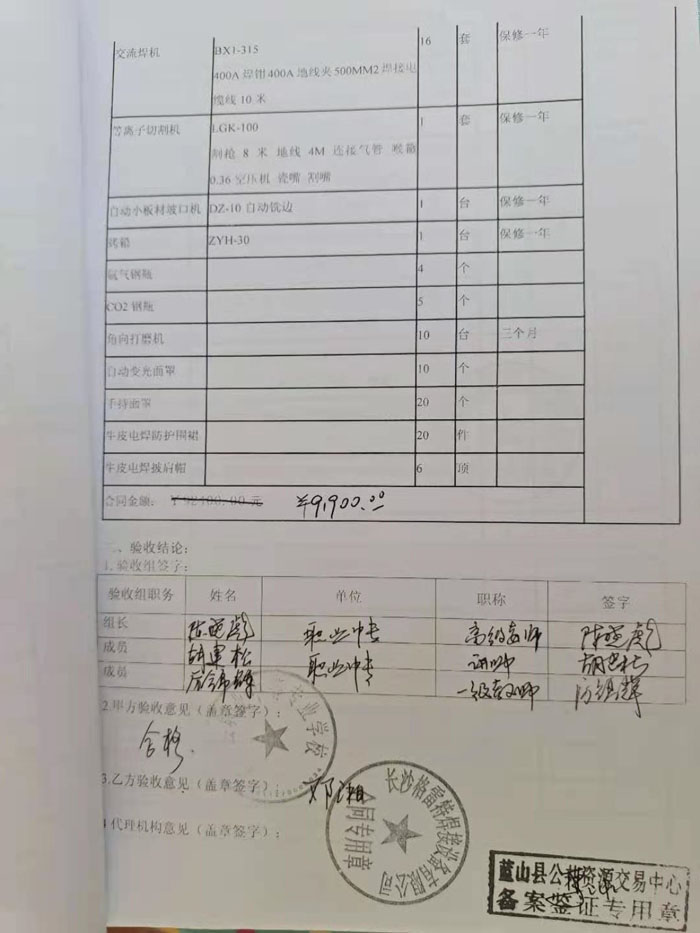 交流焊机 BX1-315 16 套 保修一年
400A 焊钳 400A 地线夹 500MM2 焊接电
缆线 10 米
等离子切割机 LGK-100 1 套 保修一年
割枪 8 米 地线 4M 连接气管 喉箍
0.36 空压机 瓷嘴 割嘴
自动小板材坡口机 DZ-10 自动铣边 1 台 保修一年
烤箱 ZYH-30 1 台 保修一年
氩气钢瓶 4 个
CO2 钢瓶 5 个
角向打磨机 10 台 三个月
自动变光面罩 10 个
手持面罩 20 个
牛皮电焊防护围裙 20 件
牛皮电焊披肩帽 6 顶
合同金额: ￥92400.00 元 ¥9,900.00
二、验收结论:
1.验收组签字:
验收组职务 姓名 单位 职称 签字
组长 职业中专 高级教师
成员 职业中专 讲师
成员 一级教师
2.甲方验收意见（盖章签字）:
合格.
业学校
3.乙方验收意见（盖章签字）: 邓湘
长沙格雷特焊接设备有限公司
合同专用章
4 代理机构意见（盖章签字）:
蓝山县公共资源交易中心
备案鉴证专用章